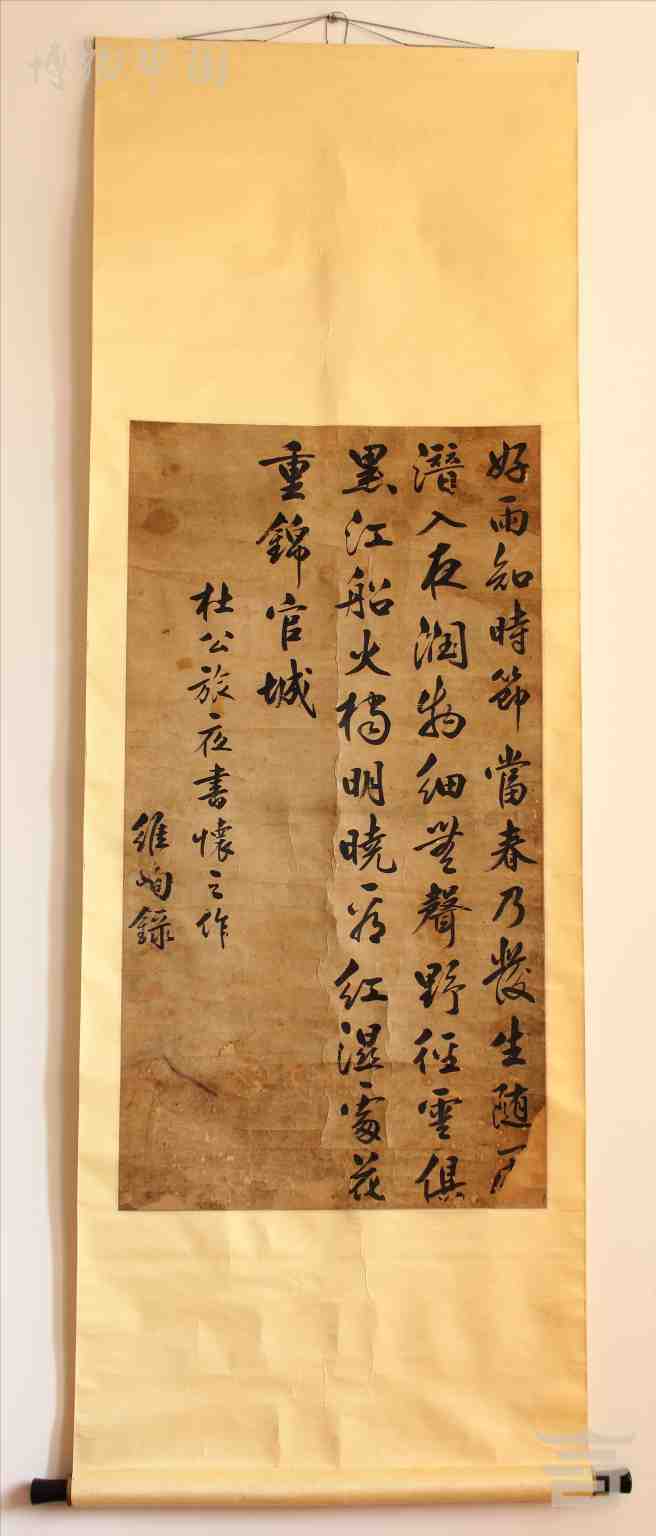 好雨知時節當春乃發生随
潛入夜润物细無聲野徑雲俱
黑江船火獨明曉看红濕處花
重錦官城
杜公旅夜書懷之作
維峋錄
博物中国